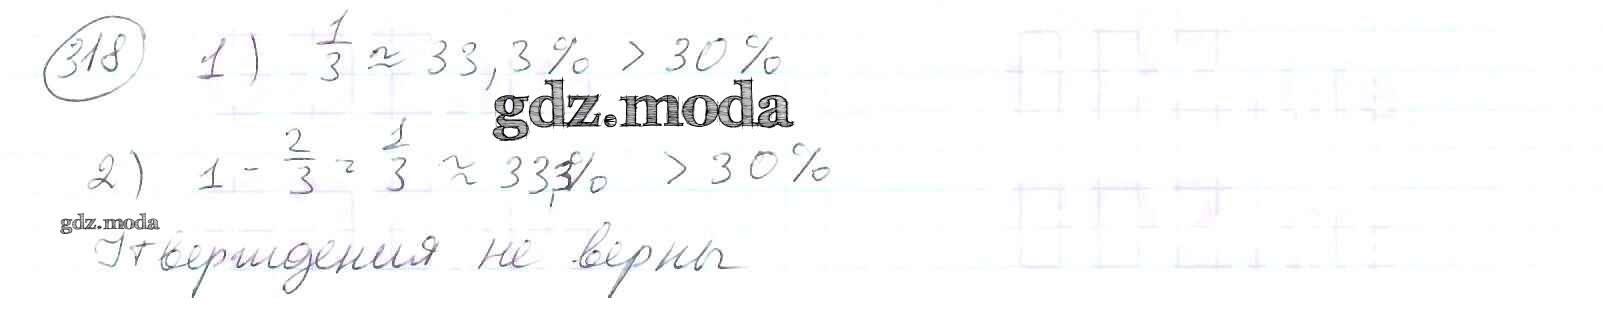 318 1) 1/3 ≈ 33,3% > 30%
gdz.moda
2) 1 - 2/3 = 1/3 ≈ 33,3% > 30%
gdz.moda
Утверждения не верны